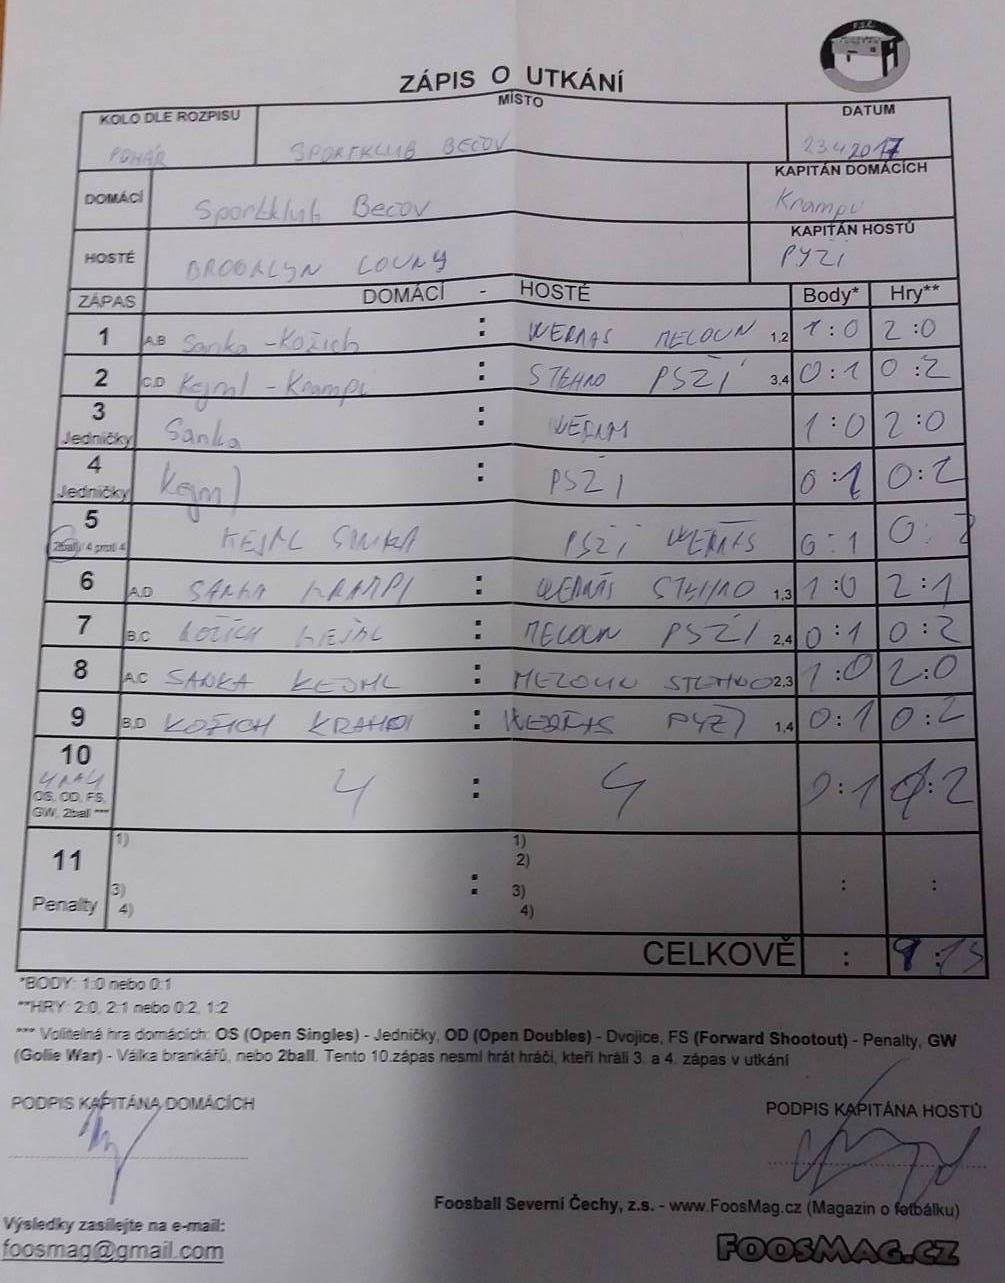 ZÁPIS O UTKÁNÍ
KOLO DLE ROZPISU MÍSTO DATUM
POHÁR SPORTKLUB BECOV 23.4.2017
DOMÁCÍ Sportklub Becov KAPITÁN DOMÁCÍCH
Krampi
HOSTÉ BROOKLYN LOUNY KAPITÁN HOSTŮ
PYŽI
ZÁPAS DOMÁCÍ - HOSTÉ Body* Hry**
1 A,B Sanka - Kožich : WERNAS MELOUN 1,2 1:0 2:0
2 C,D Kejml - Krampi : STEHNO PSŽÍ 3,4 0:1 0:2
3 Jedničky Sanka : WERNAS 1:0 2:0
4 Jedničky Kejml : PSŽI 0:1 0:2
5 2ball/ 4 proti 4 KEJML SANKA PSŽI WERNÁS 0:1 0:2
6 A,D SANKA KRAMPI : WERNÁS STEHNO 1,3 1:0 2:1
7 B,C KOŽICH KEJML : MELOUN PSŽI 2,4 0:1 0:2
8 A,C SANKA KEJML : MELOUN STEHNO 2,3 1:0 2:0
9 B,D KOŽICH KRAMPI : WERNAS PYŽI 1,4 0:1 0:2
10 4 NA 4 OS, OD, FS, GW, 2ball *** 4 : 4 0:1 0:2
11 Penalty 1) 3) 4) : 1) 2) 3) 4) : :
CELKOVĚ : 9:13
*BODY: 1:0 nebo 0:1
**HRY: 2:0, 2:1 nebo 0:2, 1:2
*** Volitelná hra domácích: OS (Open Singles) - Jedničky, OD (Open Doubles) - Dvojice, FS (Forward Shootout) - Penalty, GW
(Golie War) - Válka brankářů, nebo 2ball. Tento 10.zápas nesmí hrát hráči, kteří hráli 3. a 4. zápas v utkání
PODPIS KAPITÁNA DOMÁCÍCH PODPIS KAPITÁNA HOSTŮ
Foosball Severní Čechy, z.s. - www.FoosMag.cz (Magazín o fotbálku)
Výsledky zasílejte na e-mail:
foosmag@gmail.com FOOSMAG.CZ